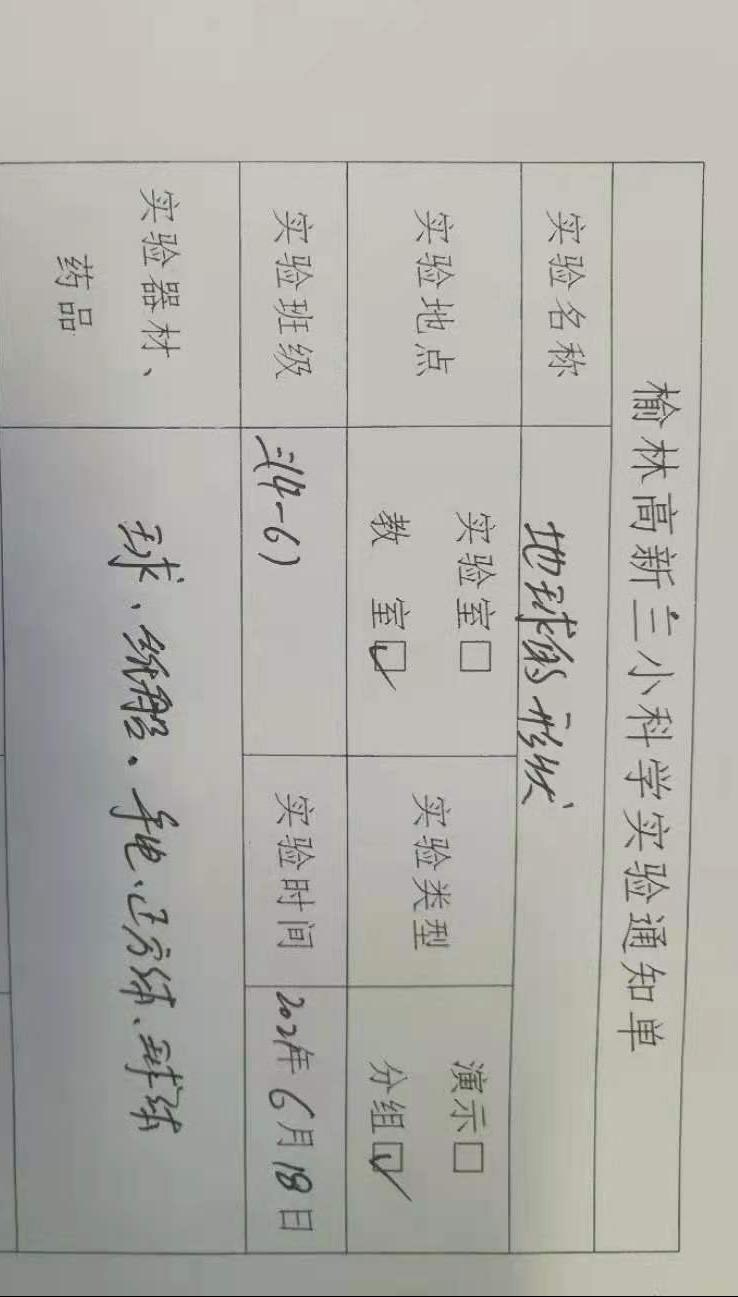 榆林高新三小科学实验通知单
实验名称
地球的形状
实验地点
实验室□
教 室☑
实验类型
演示□
分组☑
实验班级
三(4-6)
实验时间
2021年6月18日
实验器材、
药品
球、纸船、手电、正方体、球体